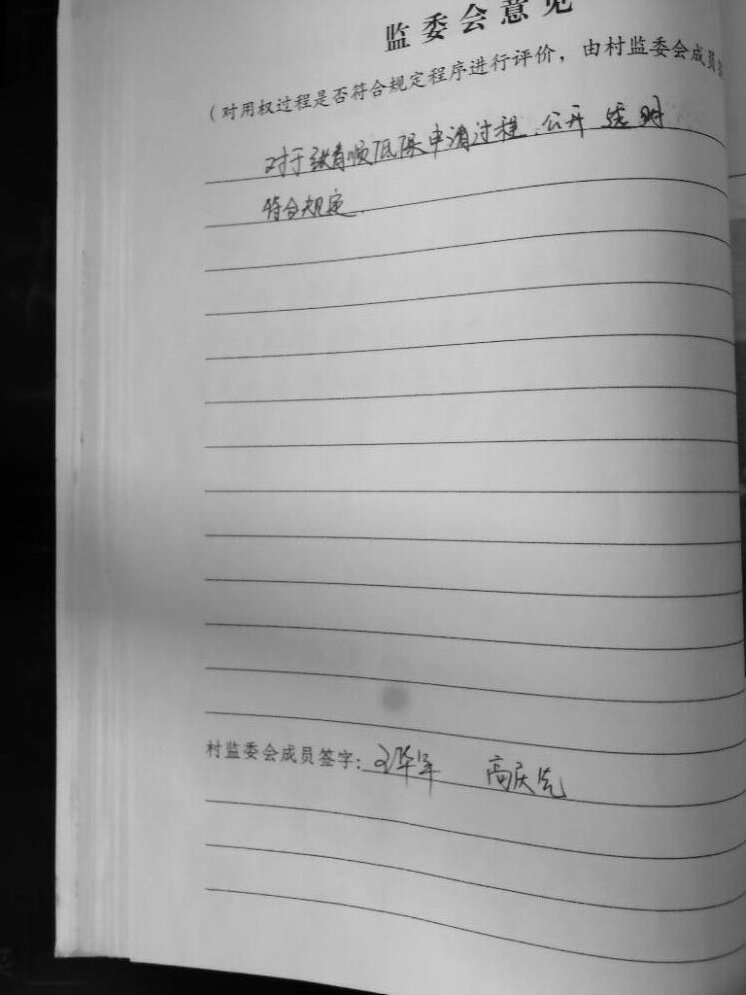 监委会意见
(对用权过程是否符合规定程序进行评价，由村监委会成员
对于张春顺低保申请过程、公开
符合规定
村监委会成员签字: 高庆